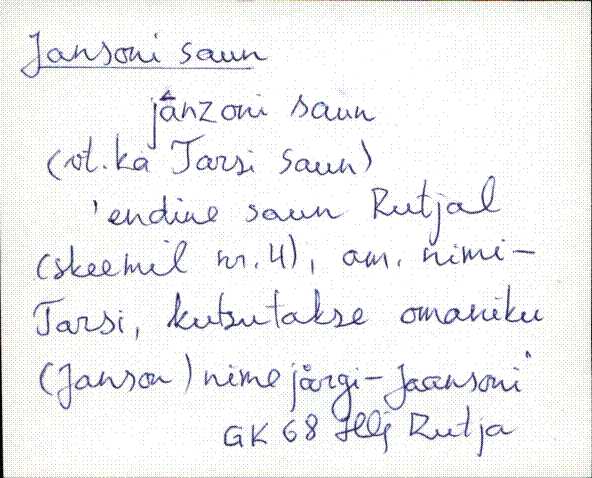 Jansoni saun
jânzoni saun
(vt. ka Tarsi saun)
'endine saun Rutjal
(skeemil nr. 4), am. nimi-
Tarsi, kutsutakse omaniku
(Janson) nime järgi - Jaansoni"
GK 68 Hlj Rutja